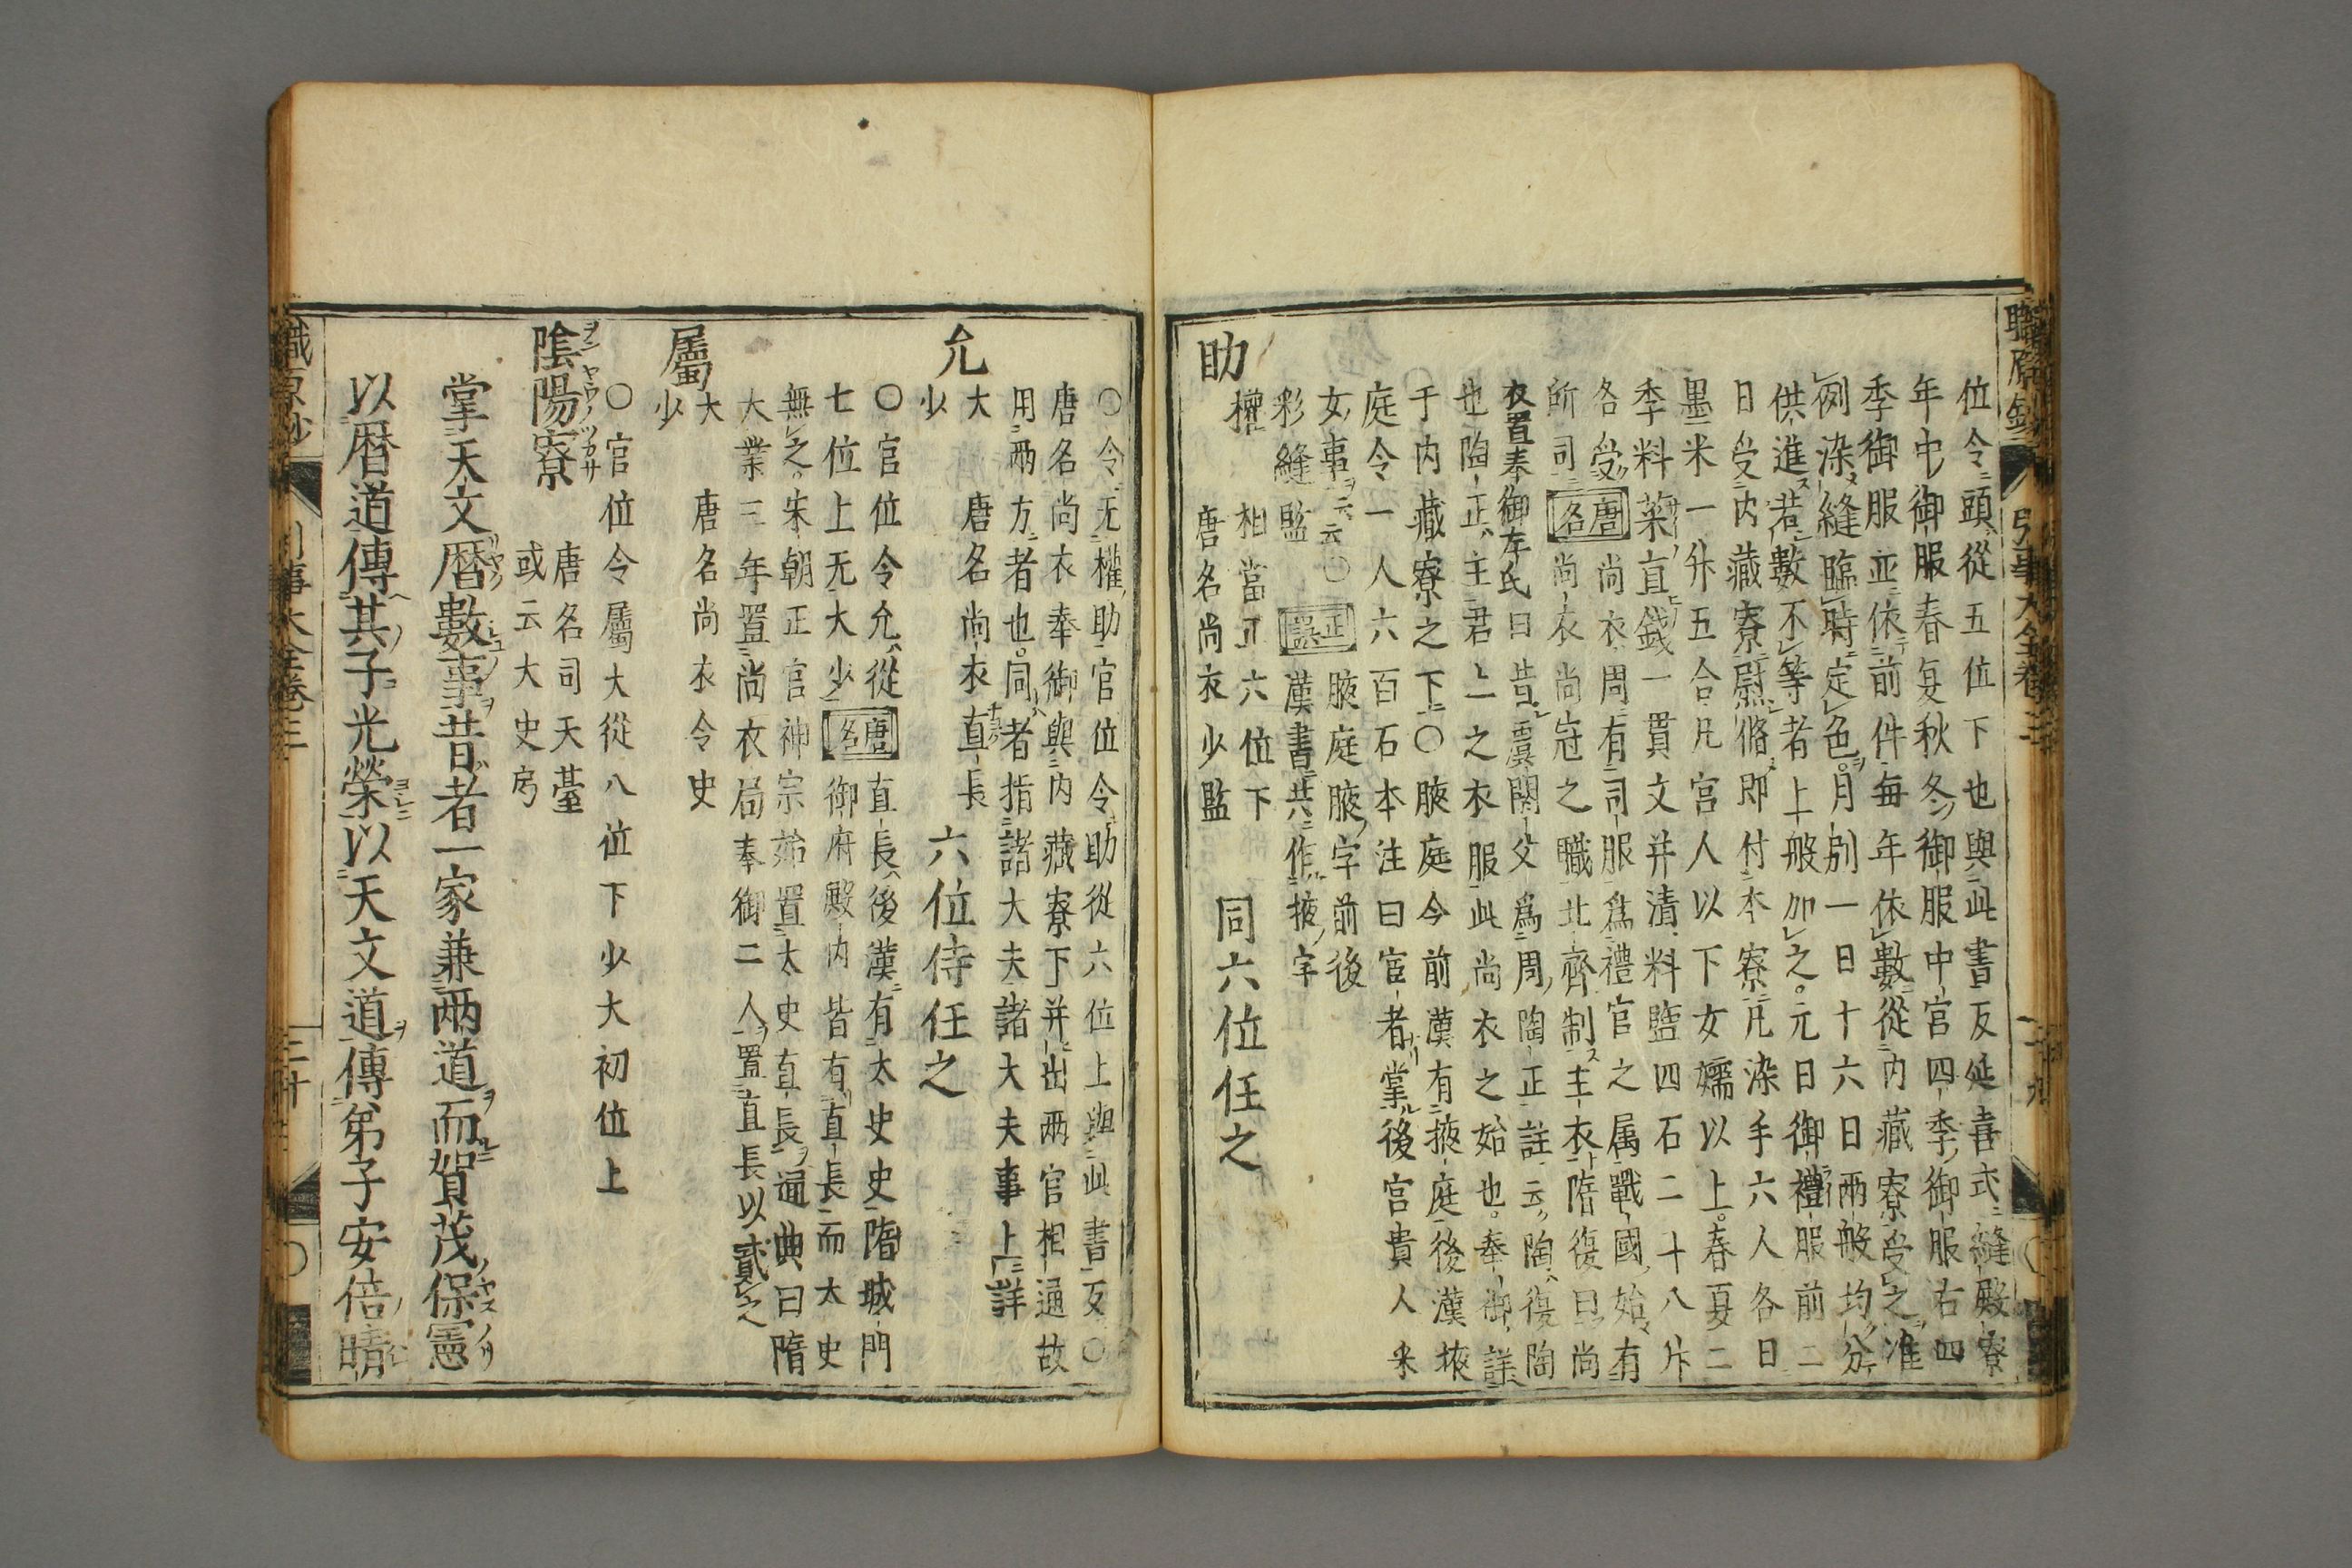 位令頭從五位下也與此書反延喜式縫殿寮
年中御服春夏秋冬御服中宮四季御服右四
季御服並依前件毎年依數從内藏寮受之准
例染縫臨時定色月別一日十六日兩般均分
供進若數不等者上般加之元日御禮服前二
日受内藏寮尉脩即付本寮凡染手六人各日
墨米一升五合凡宮人以下女嬬以上春夏二
季料菜直錢一貫文并漬料鹽四石二十八斤
各受唐名尚衣周有司服爲禮官之属戰國始有
所司尚衣尚冠之職北齊制主衣隋復曰尚
衣置奉御左氏曰昔虞閼父爲周陶正註云陶復陶
也陶正主君上之衣服此尚衣之始也奉御詳
于内藏寮之下〇腋庭今前漢有掖庭後漢掖
庭令一人六百石本注曰宦者掌後宮貴人采
女事云云〇正腋庭腋字前後
彩縫監 漢書共作掖字
助 權 相當正六位下 同六位任之
唐名尚衣少監
〇令无權助官位令助從六位上與此書反〇
唐名尚衣奉御與内藏寮下并出兩官相通故
用兩方者也同者指諸大夫諸大夫事上詳
允 大 唐名尚衣直長 六位侍任之
少
〇官位令允從唐名直長後漢有太史史隋城門
七位上无大少御府殿内皆有直長而太史
無之朱朝正官神宗始置太史直長通典曰隋
大業三年置尚衣局奉御二人置直長以貳之
屬 大 唐名尚衣令史
少
〇官位令屬大從八位下少大初位上
陰陽寮 唐名司天臺
或云大史局
掌天文暦數事昔者一家兼兩道而賀茂保憲
以暦道傳其子光榮以天文道傳弟子安倍晴
職原抄 引事大全卷三 三十